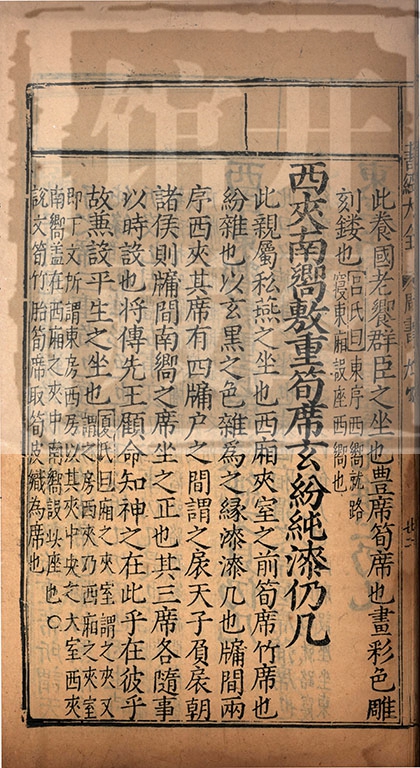 此養國老饗群臣之坐也豊席筍席也畫彩色雕
刻鏤也
呂氏曰東序西嚮路
寢東厢設座西嚮也
西夾南嚮敷重筍席玄紛純漆仍几
此親屬私燕之坐也西廂夾室之前筍席竹席也
紛雜也以玄黑之色雜爲之緣漆漆几也牖間兩
序西夾其席有四牖户之間謂之扆天子負扆朝
諸侯則牖間南嚮之席坐之正也其三席各隨事
以時設也將傳先王顧命知神之在此乎在彼乎
故兼設平生之坐也
夏氏曰廂之夾室謂之夾又
謂之房西夾乃西廂之夾室
即下文所謂東房西房以其夾中央之大室西夾
南嚮盖在西廂之夾中南嚮設以座也○
說文筍竹胎筍席取筍皮織為席也